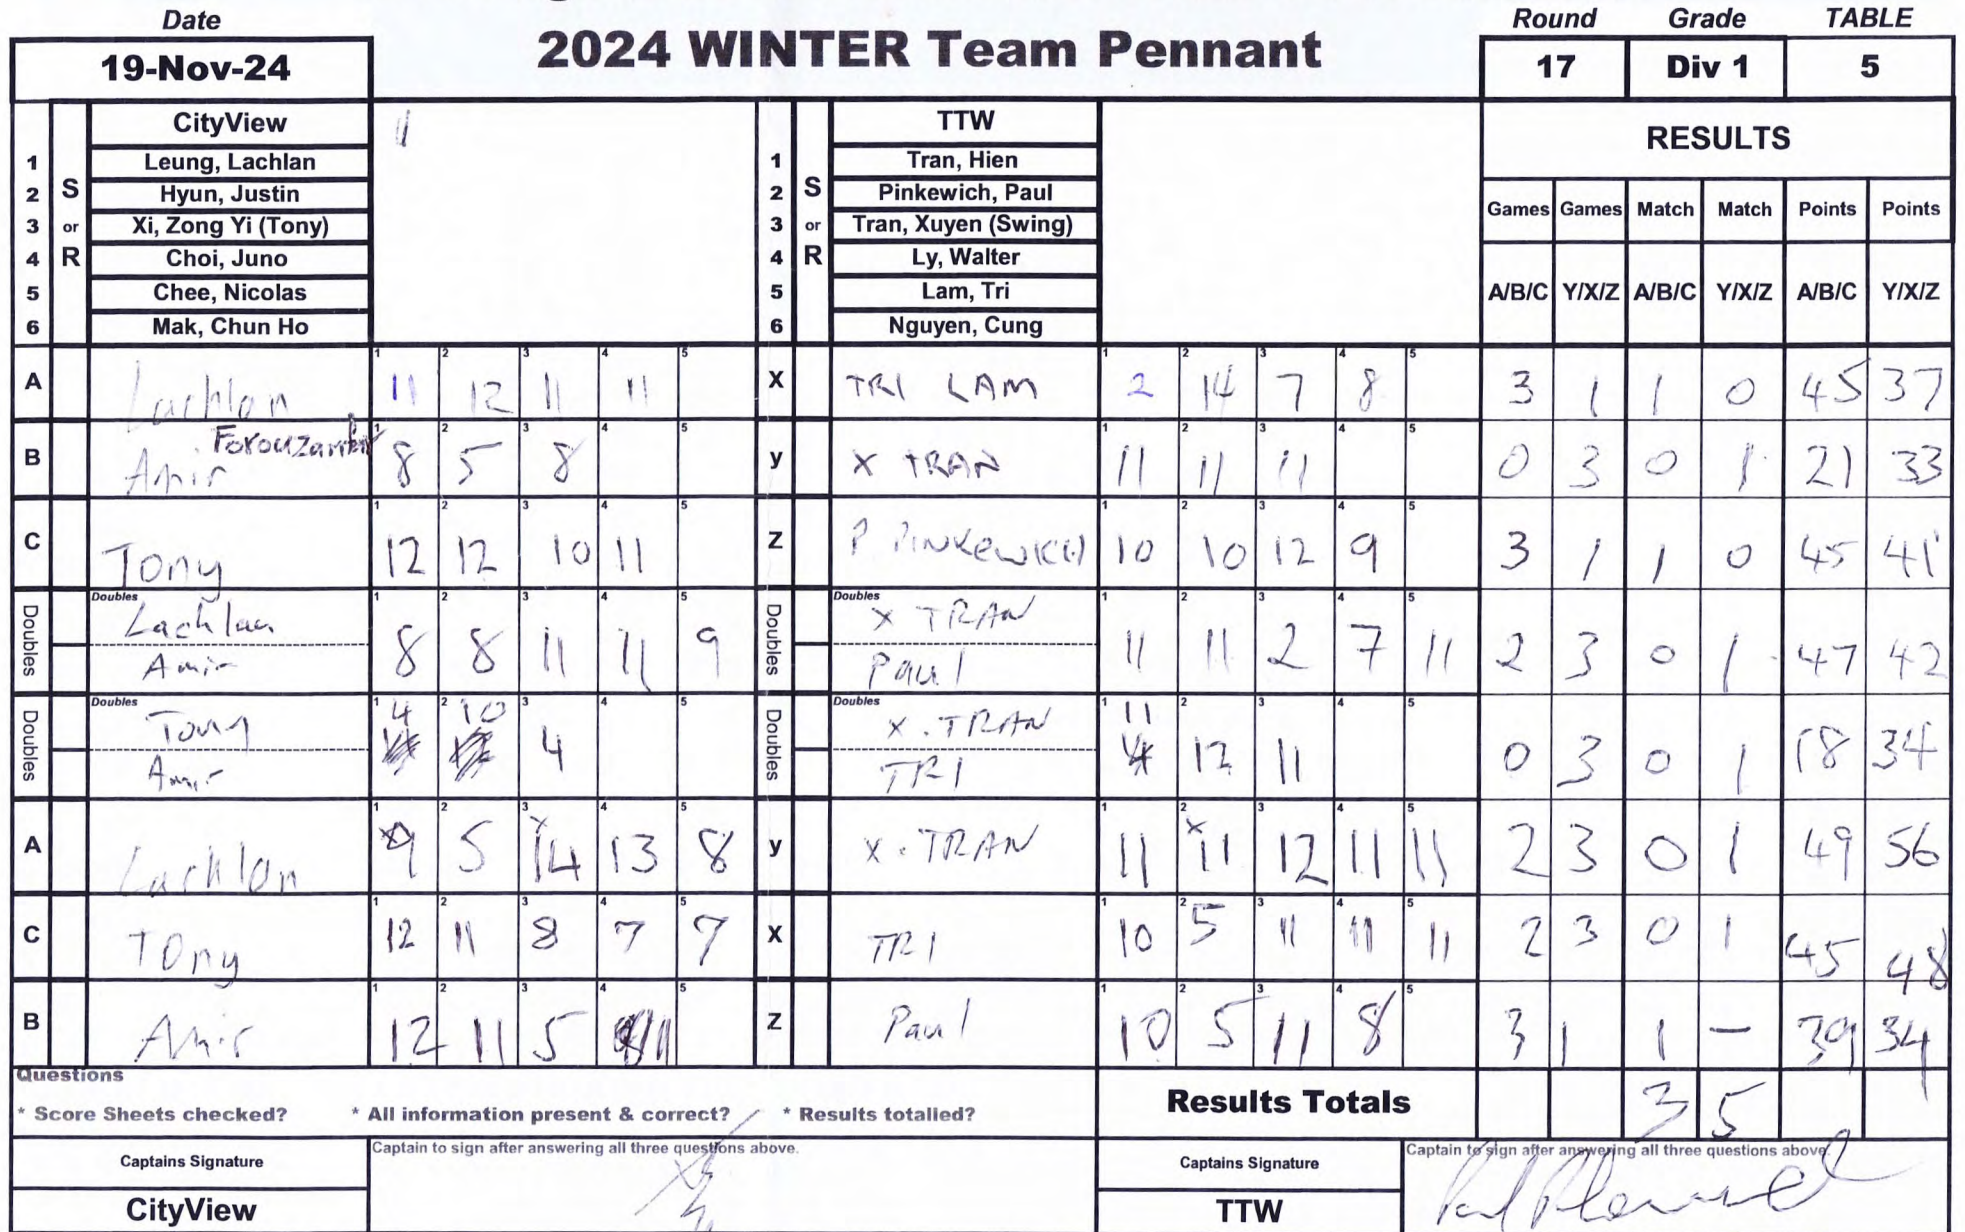 Date
19-Nov-24
2024 WINTER Team Pennant
Round Grade TABLE
17 Div 1 5
CityView
1 Leung, Lachlan
2 Hyun, Justin
3 Xi, Zong Yi (Tony)
4 Choi, Juno
5 Chee, Nicolas
6 Mak, Chun Ho
S or R
TTW
1 Tran, Hien
2 Pinkewich, Paul
3 Tran, Xuyen (Swing)
4 Ly, Walter
5 Lam, Tri
6 Nguyen, Cung
S or R
RESULTS
Games Games Match Match Points Points
A/B/C Y/X/Z A/B/C Y/X/Z A/B/C Y/X/Z
A Lachlan 11 12 11 11 X TRI LAM 2 14 7 8 3 1 1 0 45 37
B Amir 8 5 8 y X TRAN 11 11 11 0 3 0 1 21 33
C Tony 12 12 10 11 Z P PINKEWICH 10 10 12 9 3 1 1 0 45 41
Doubles Lachlan 8 8 11 11 9 Doubles X TRAN 11 11 2 7 11 2 3 0 1 47 42
Amir Paul
Doubles Tony 4 10 4 Doubles X. TRAN 11 12 11 0 3 0 1 18 34
Amir TRI
A Lachlan 9 5 14 13 8 y X. TRAN 11 11 12 11 11 2 3 0 1 49 56
C Tony 12 11 8 7 7 X TRI 10 5 11 11 11 2 3 0 1 45 48
B Amir 12 11 5 11 Z Paul 10 5 11 8 3 1 1 — 39 34
Questions
* Score Sheets checked? * All information present & correct? * Results totalled?
Results Totals 3 5
Captains Signature
Captain to sign after answering all three questions above.
CityView
Captains Signature
Captain to sign after answering all three questions above.
TTW